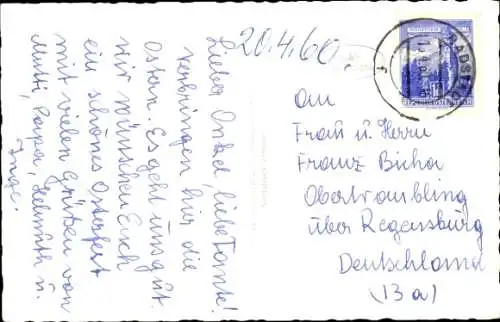 20.4.60
Lieber Onkel, liebe Tante!
verbringen hier die
Ostern. Es geht uns gut.
Wir wünschen Euch
ein schönes Osterfest
mit vielen Grüßen von
Mutti, Papa, Helmuth u.
Inge.
An
Frau u. Herrn
Franz Bicha
Obertraubling
über Regensburg
Deutschland
(13a)
RADSTADT
REPUBLIK ÖSTERREICH